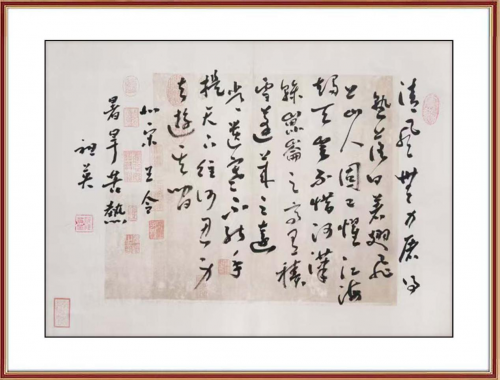 清風無力屠得
熱落日着翅飛
上山人固已懼江海
竭天豈不惜河漢
幹崑崙之高有積
雪蓬萊之遠
常遺寒不能手
提天下往何忍身
去遊其間
北宋王令
暑旱苦熱
祖英